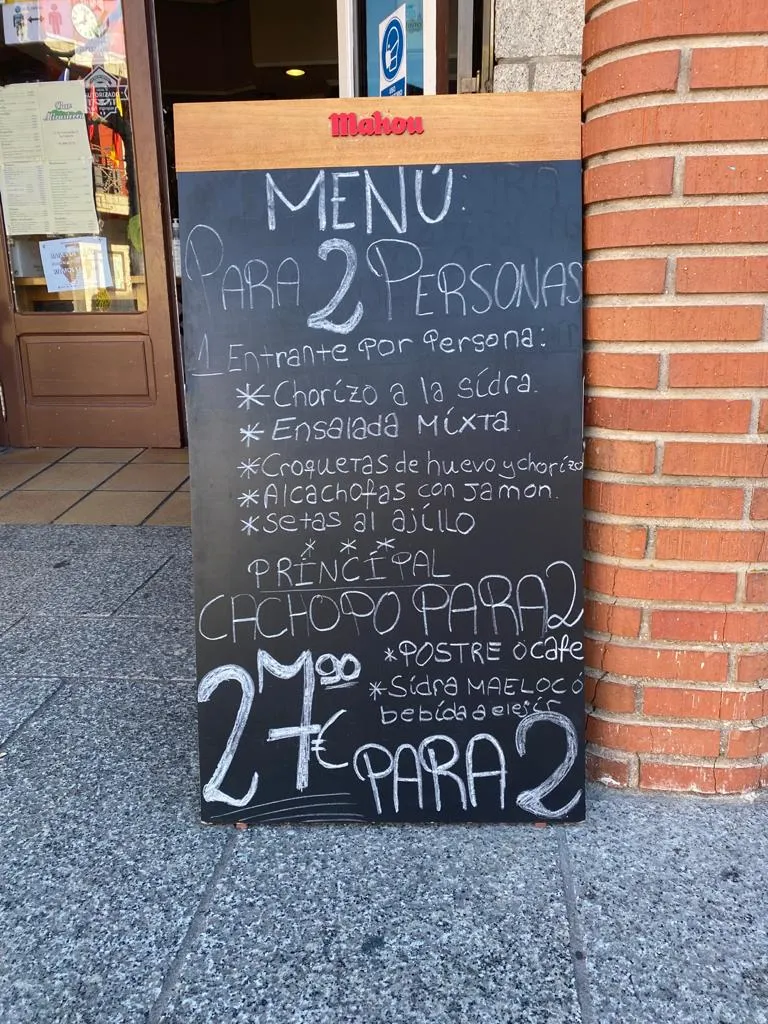 Mahou
MENÚ:
PARA 2 PERSONAS
1 Entrante por persona:
* Chorizo a la sidra.
* Ensalada Mixta.
* Croquetas de huevo y chorizo
* Alcachofas con Jamon.
* Setas al ajillo
* * *
PRINCIPAL
CACHOPO PARA 2
* POSTRE O Cafe
* Sidra MAELOC Ó
bebida a elejir
27'90 €
PARA 2